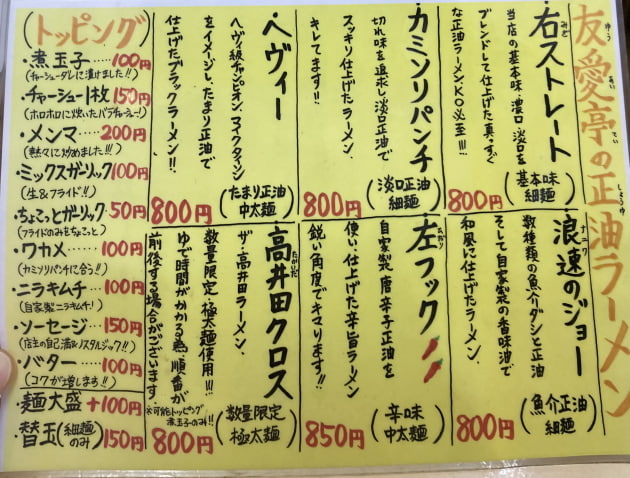 友愛亭の正油ラーメン
ゆう
あい
てい
しょうゆ
右ストレート
みぎ
当店の基本味、濃口、淡口を
ブレンドして仕上げた真っすぐ
な正油ラーメン、KO必至!!!
(基本味
細麺)
800円
カミソリパンチ
切れ味を追求し、淡口正油で
スッキリ仕上げたラーメン、
キレてます!!
(淡口正油
細麺)
800円
ヘヴィー
ヘヴィ級チャンピオン、マイクタイソン
をイメージし、たまり正油で
仕上げたブラックラーメン!!、
(たまり正油
中太麺)
800円
浪速のジョー
ナニワ
数種類の魚介ダシと正油
そして自家製の香味油で
和風に仕上げたラーメン、
(魚介正油
細麺)
800円
左フック
ひだり
自家製、唐辛子正油を
使い、仕上げた辛旨ラーメン
鋭い角度でキマります!!
(辛味
中太麺)
850円
高井田クロス
たかいだ
ザ・高井田ラーメン、
数量限定、極太麺使用!!!
ゆで時間がかかる為、順番が
前後する場合がございます
(数量限定
極太麺)
※可能トッピング
煮玉子のみ!!
800円
(トッピング)
・煮玉子……100円
(チャーシューダレに漬けました!!)
・チャーシュー1枚 150円
(ホロホロに炊いたバラチャーシュー!)
・メンマ……200円
(熱々に炒めました!!!)
・ミックスガーリック100円
(生&フライド!!)
・ちょこっとガーリック50円
(フライドのみをちょこっと)
・ワカメ……100円
(カミソリパンチに合う!!)
・ニラキムチ…100円
(自家製ニラキムチ!)
・ソーセージ…150円
(店主の自己満&ノスタルジック!!)
・バター……100円
(コクが増します!!)
・麺大盛 +100円
・替玉(細麺のみ)150円